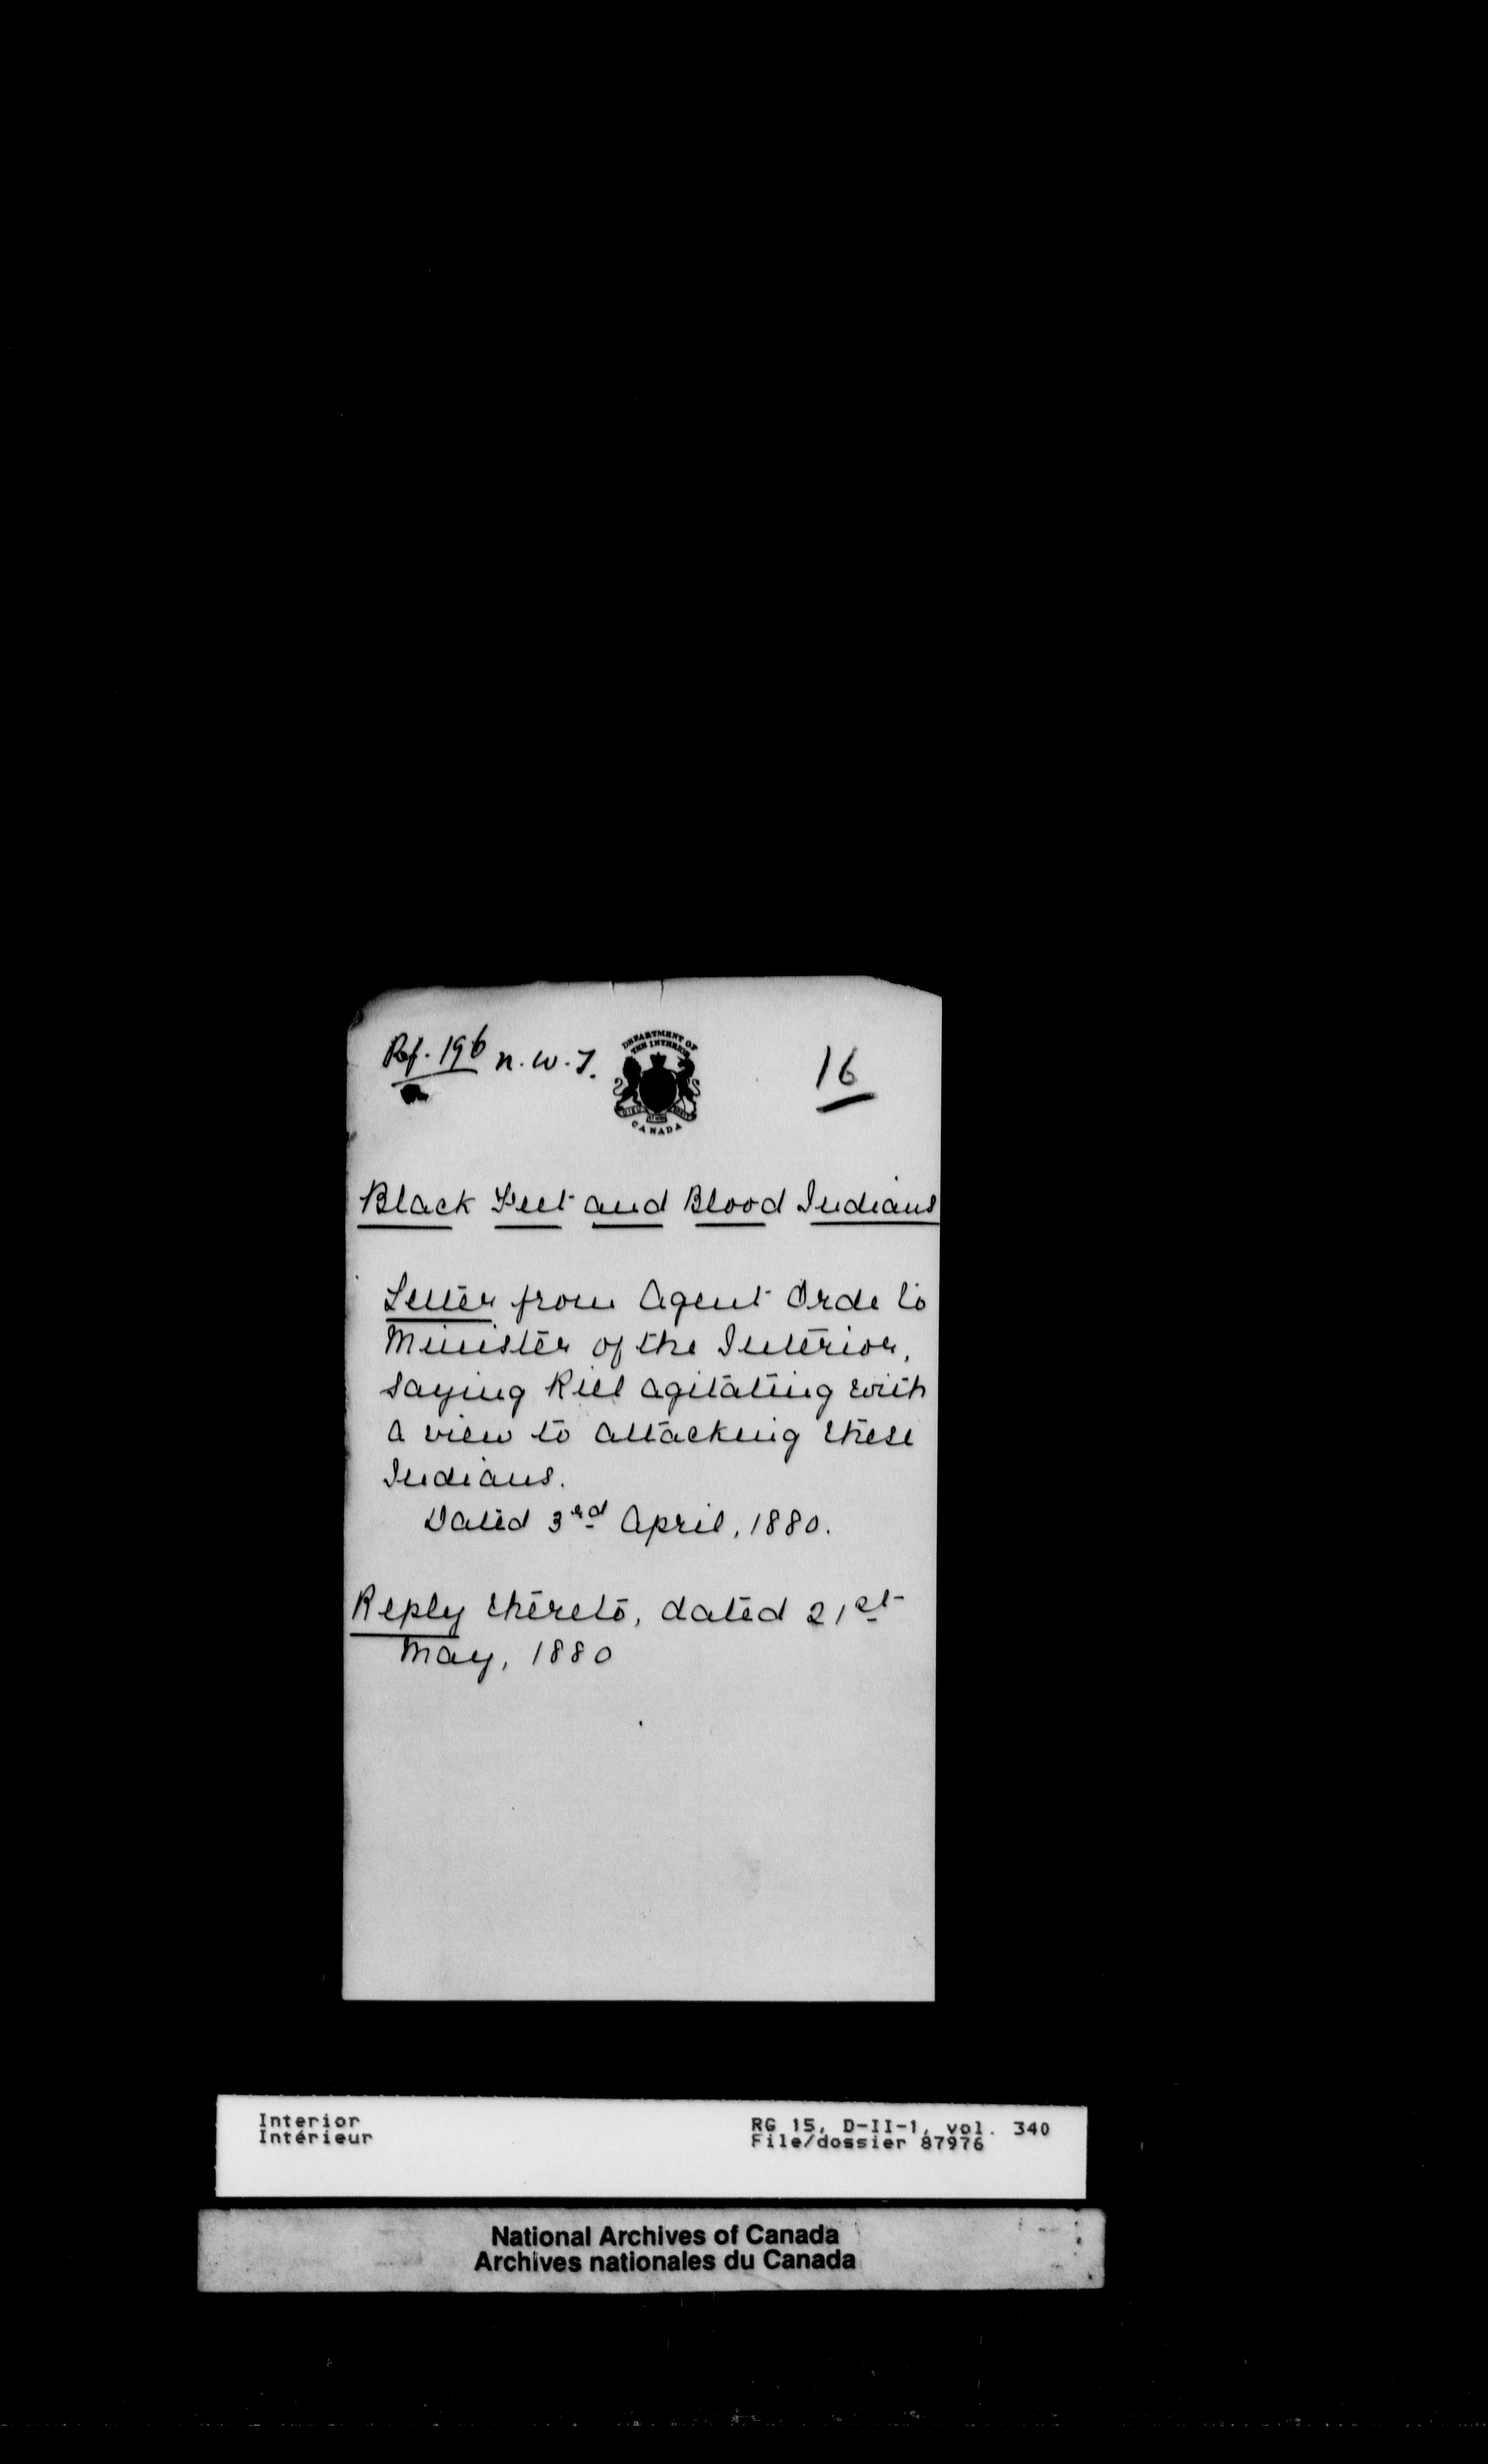 Ref. 196 N.W.T.
DEPARTMENT OF
THE INTERIOR
CANADA
16
Black Feet and Blood Indians
Letter from Agent Orde to
Minister of the Interior,
saying Riel agitating with
a view to attacking these
Indians.
Dated 3rd April, 1880.
Reply thereto, dated 21st
May, 1880
Interior
Intérieur
RG 15, D-II-1, vol. 340
File/dossier 87976
National Archives of Canada
Archives nationales du Canada